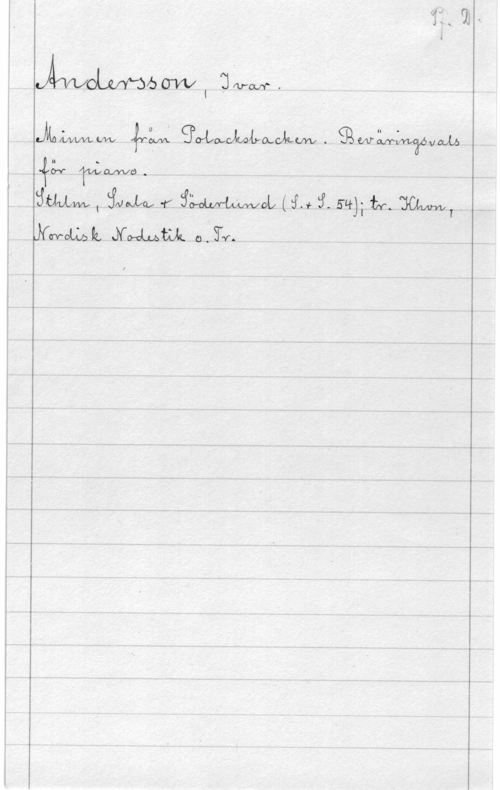 Pf. D.
Andersson, Ivar.
Minnen från Polacksbacken. Beväringsvals
för piano.
Sthlm, Svala + Söderlund (S.+S. 54); tr. Khvn,
Nordisk Nodestik o. Tr.